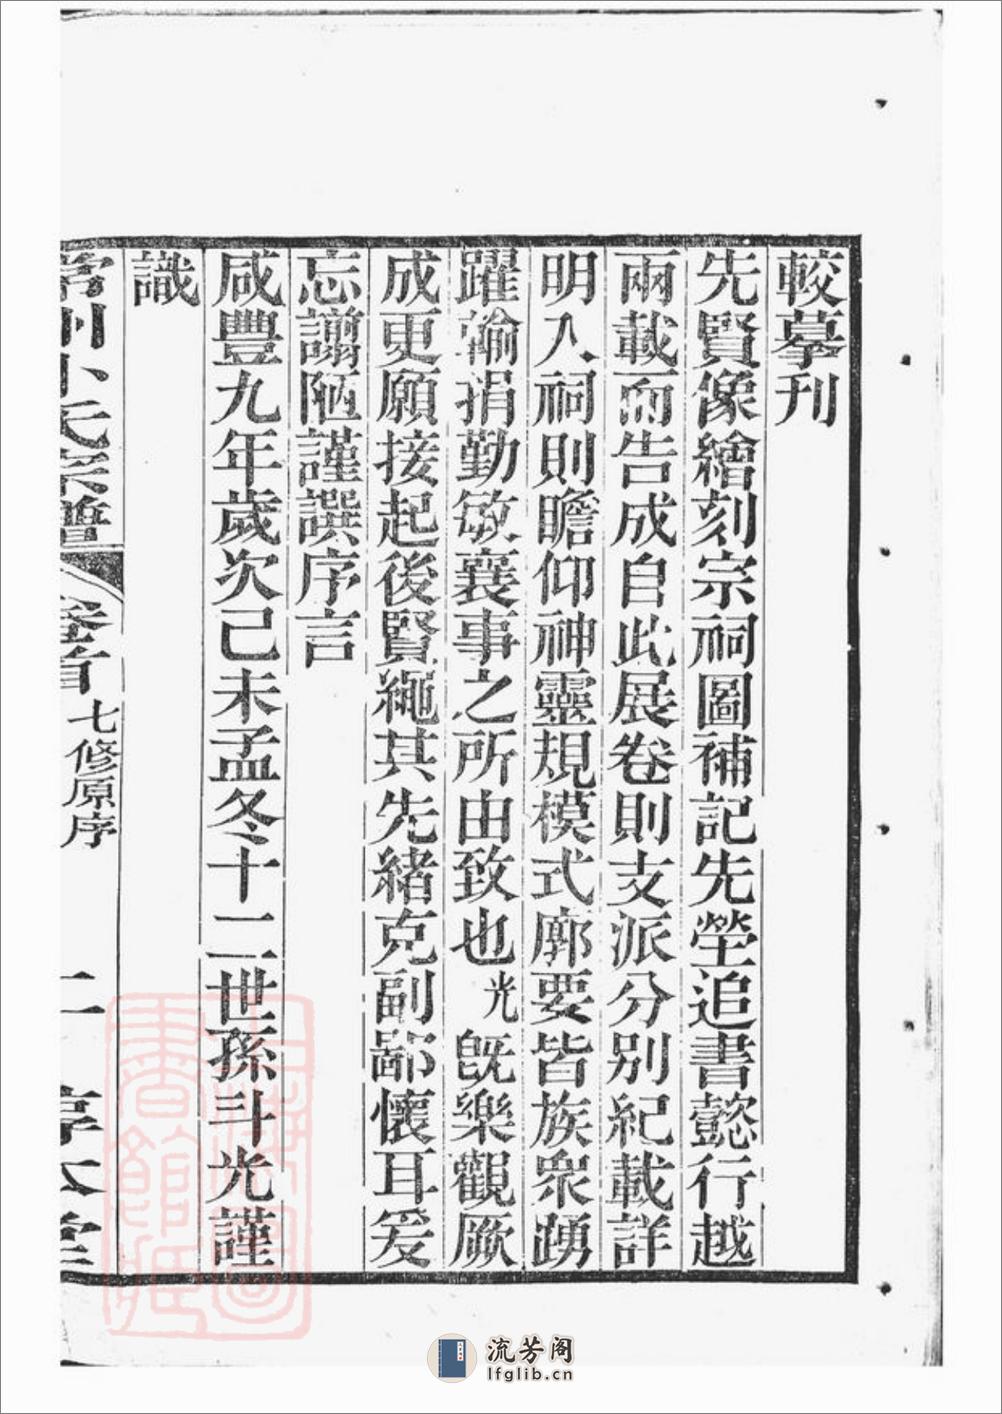 較摹刊
先賢像繪刻宗祠圖補記先塋追書懿行越
兩載而告成自此展卷則支派分別紀載詳
明入祠則瞻仰神靈規模式廓要皆族衆踴
躍輸捐勤敏襄事之所由致也光既樂觀厥
成更願接起後賢繩其先緒克副鄙懷耳爰
忘譾陋謹譔序言
咸豐九年歲次己未孟冬十二世孫斗光謹
識
宗譜 卷首 七修原序 二
流芳阁
lfglib.cn